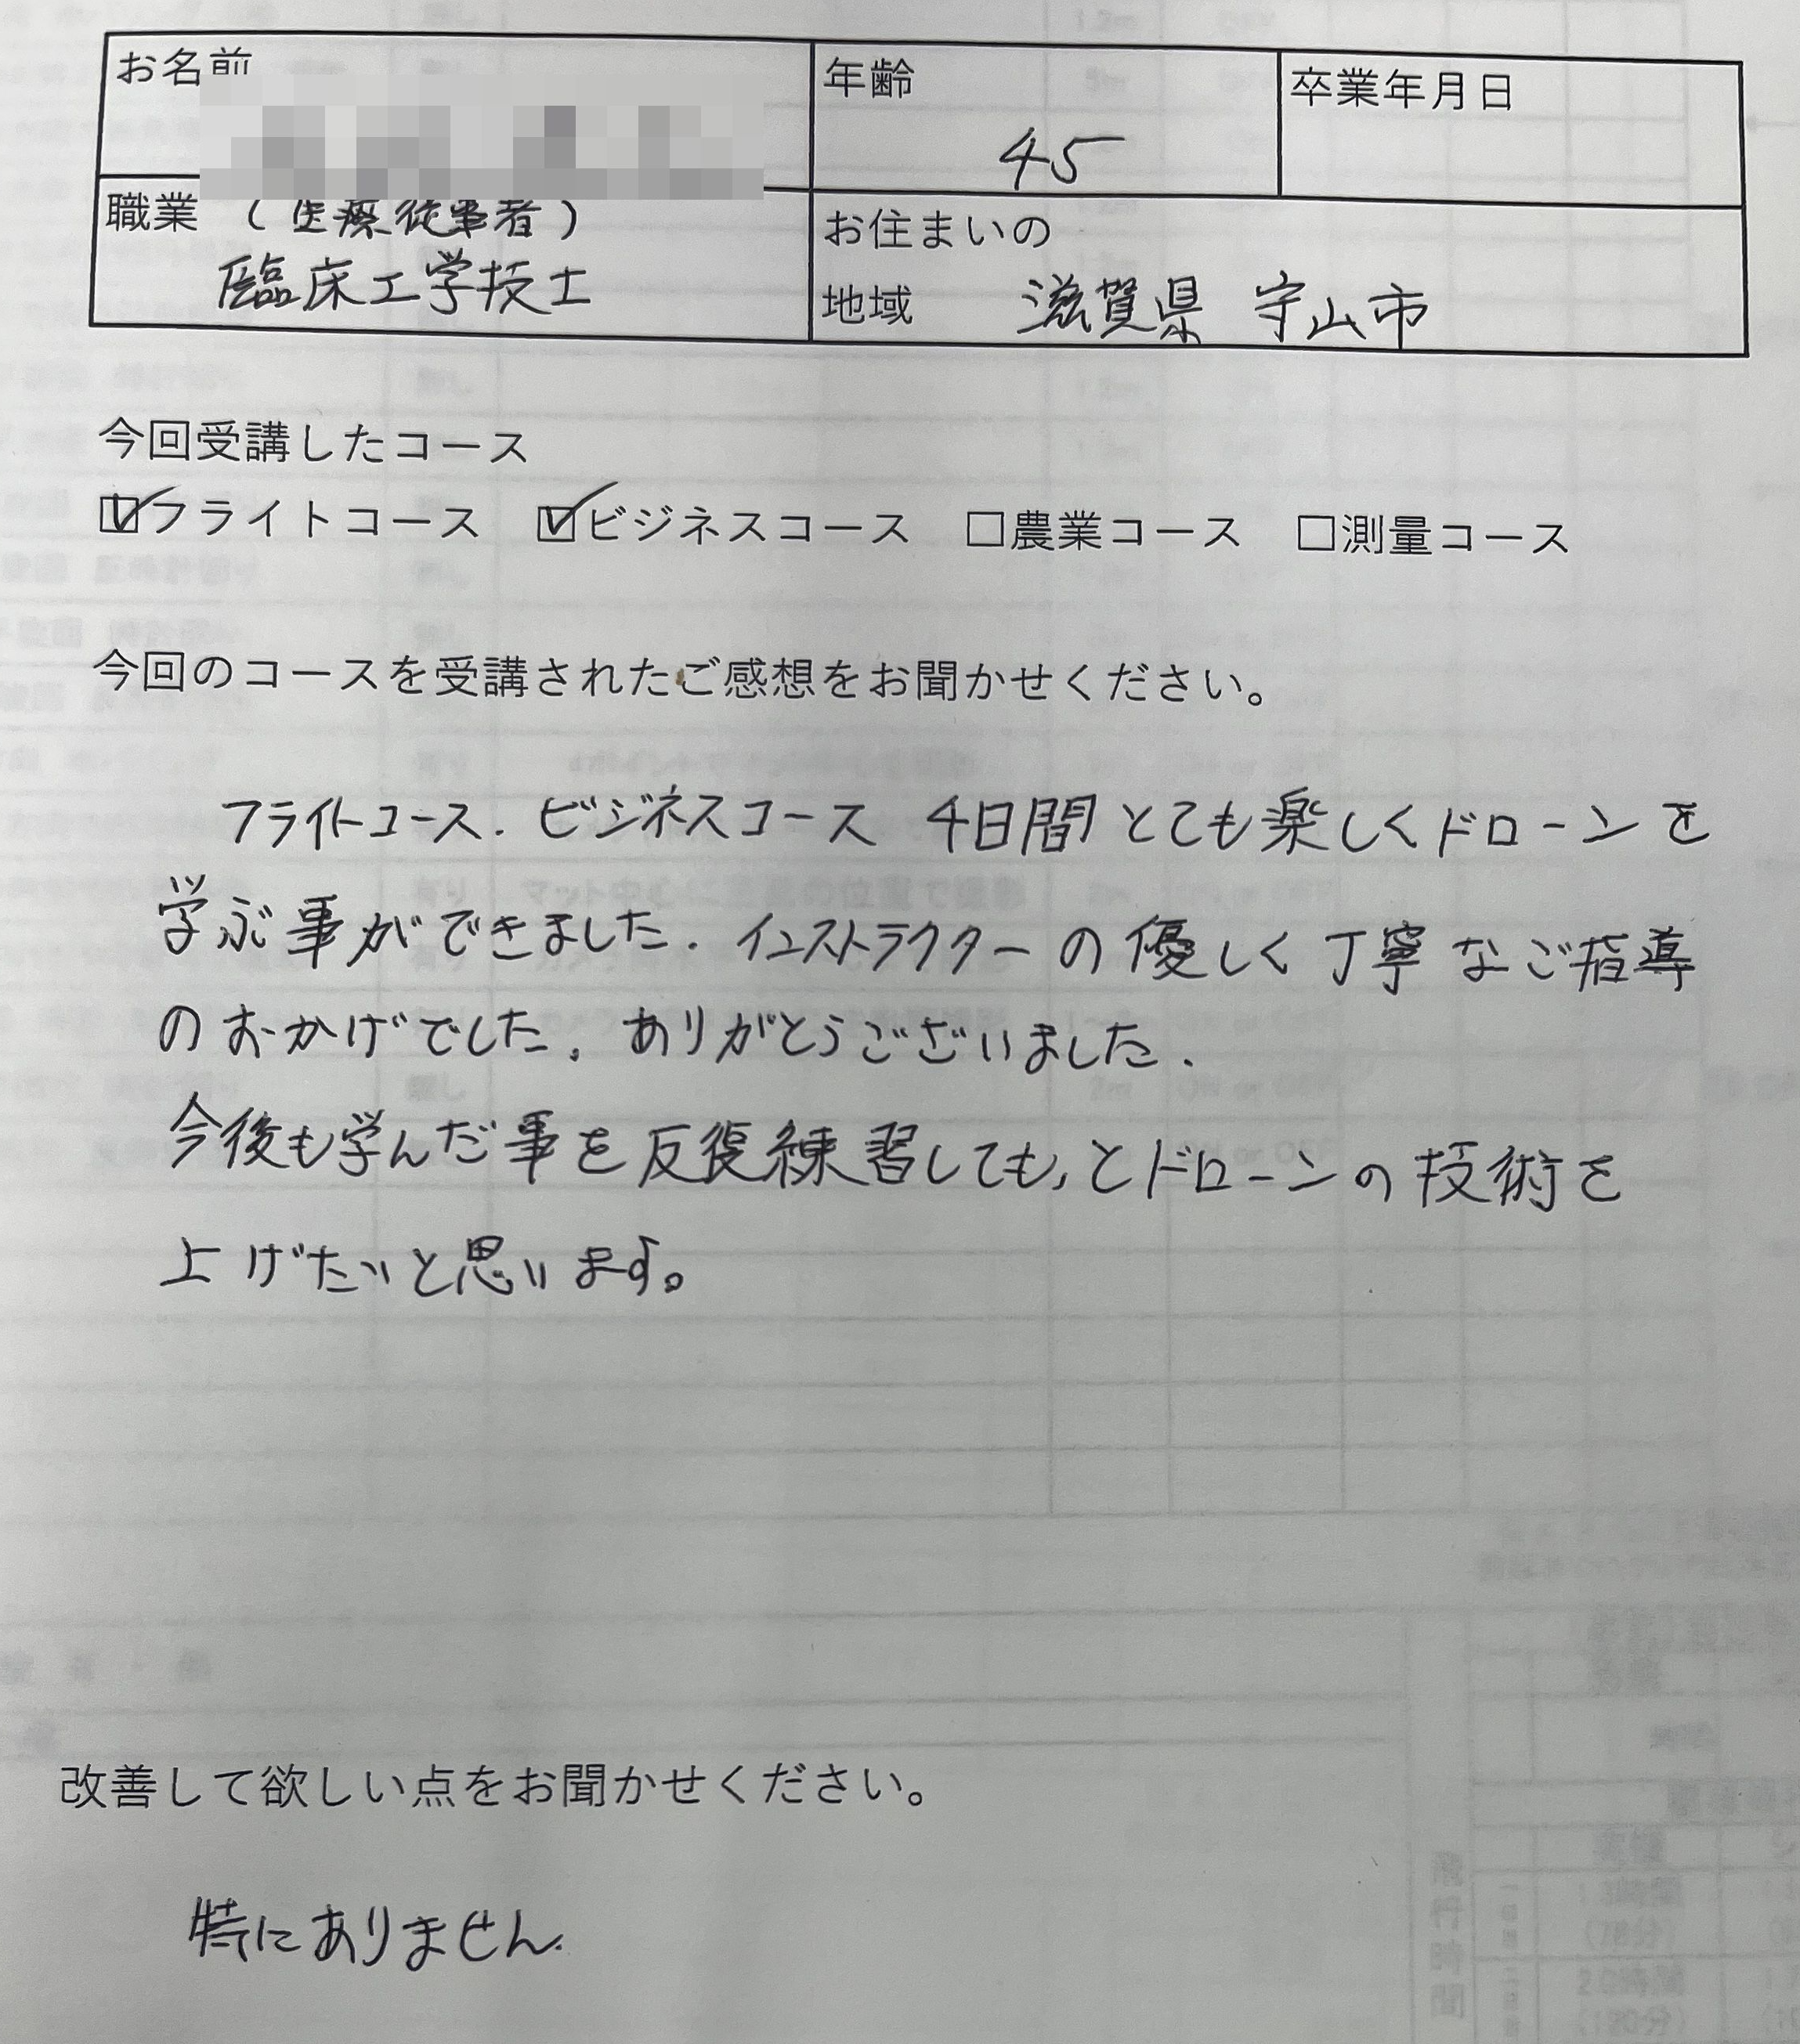 お名前
年齢
45
卒業年月日
職業 (医療従事者)
臨床工学技士
お住まいの
地域 滋賀県 守山市
今回受講したコース
☑フライトコース ☑ビジネスコース □農業コース □測量コース
今回のコースを受講されたご感想をお聞かせください。
フライトコース．ビジネスコース 4日間とても楽しくドローンを
学ぶ事ができました．インストラクターの優しく丁寧なご指導
のおかげでした．ありがとうございました．
今後も学んだ事を反復練習してもっとドローンの技術を
上げたいと思います。
改善して欲しい点をお聞かせください。
特にありません．